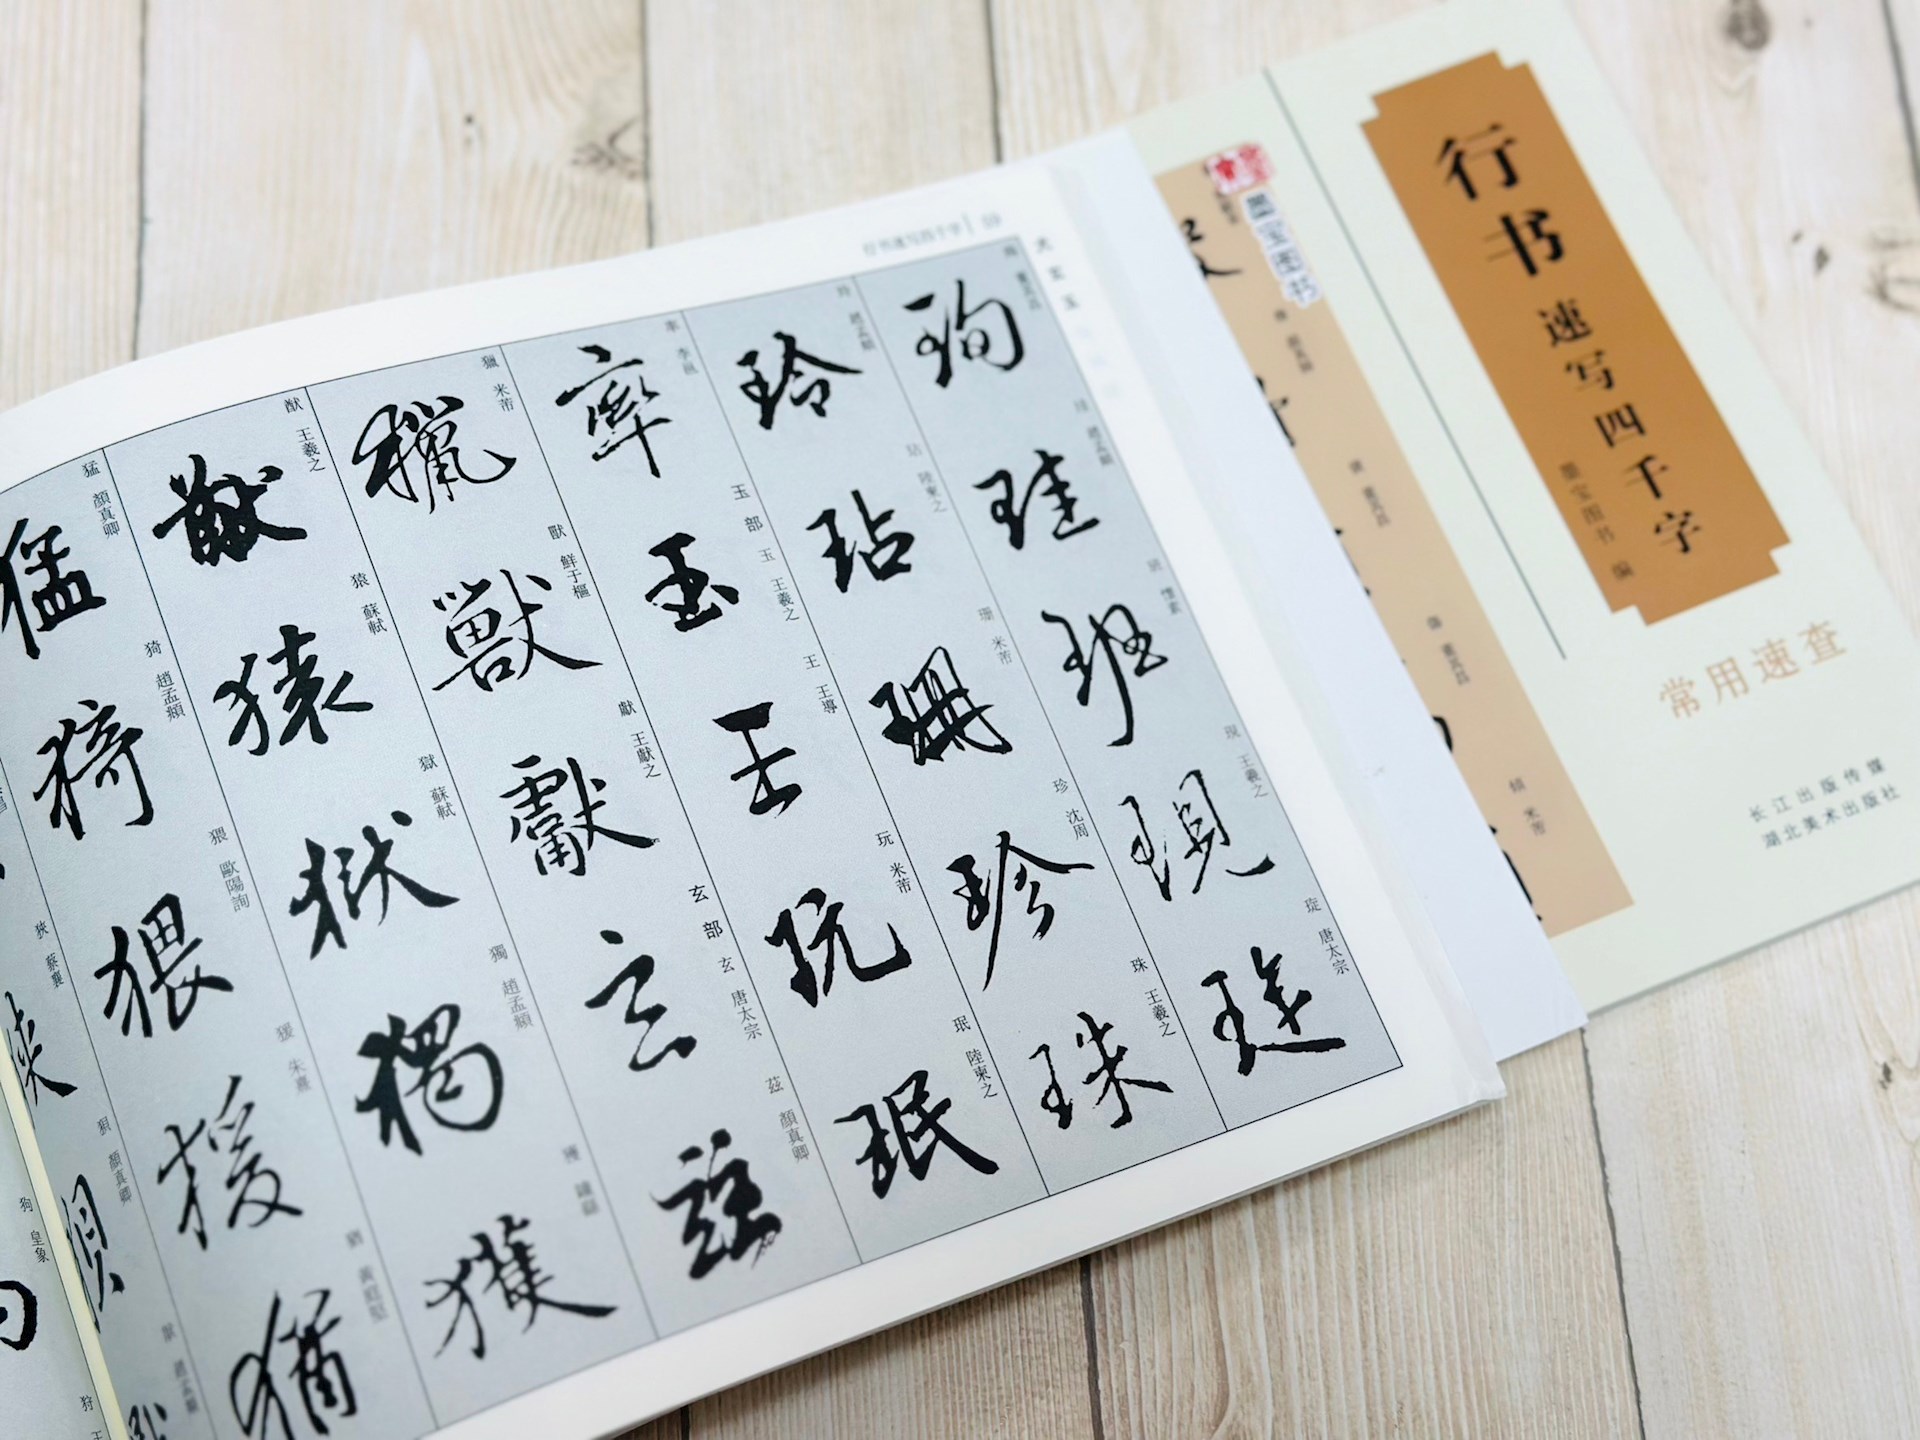 行书速写四千字
墨宝图书 编
常用速查
长江出版传媒
湖北美术出版社
墨宝图书
行书速写四千字 59
犬 玄 玉
珣 董其昌
珪 趙孟頫
班 懷素
現 王羲之
琁 唐太宗
玲 趙孟頫
玷 陸柬之
珊 米芾
珍 沈周
珠 王羲之
率 李邕
玉部
玉 王羲之
王 王導
玩 米芾
珉 陸柬之
獵 米芾
獸 鮮于樞
獻 王獻之
玄部
玄 唐太宗
茲 顏真卿
猷 王羲之
猿 蘇軾
獄 蘇軾
獨 趙孟頫
獲 鍾繇
猛 顏真卿
猗 趙孟頫
猥 歐陽詢
猨 朱熹
猶 黃庭堅
狹 蔡襄
狽 顏真卿
狗 皇象
狩